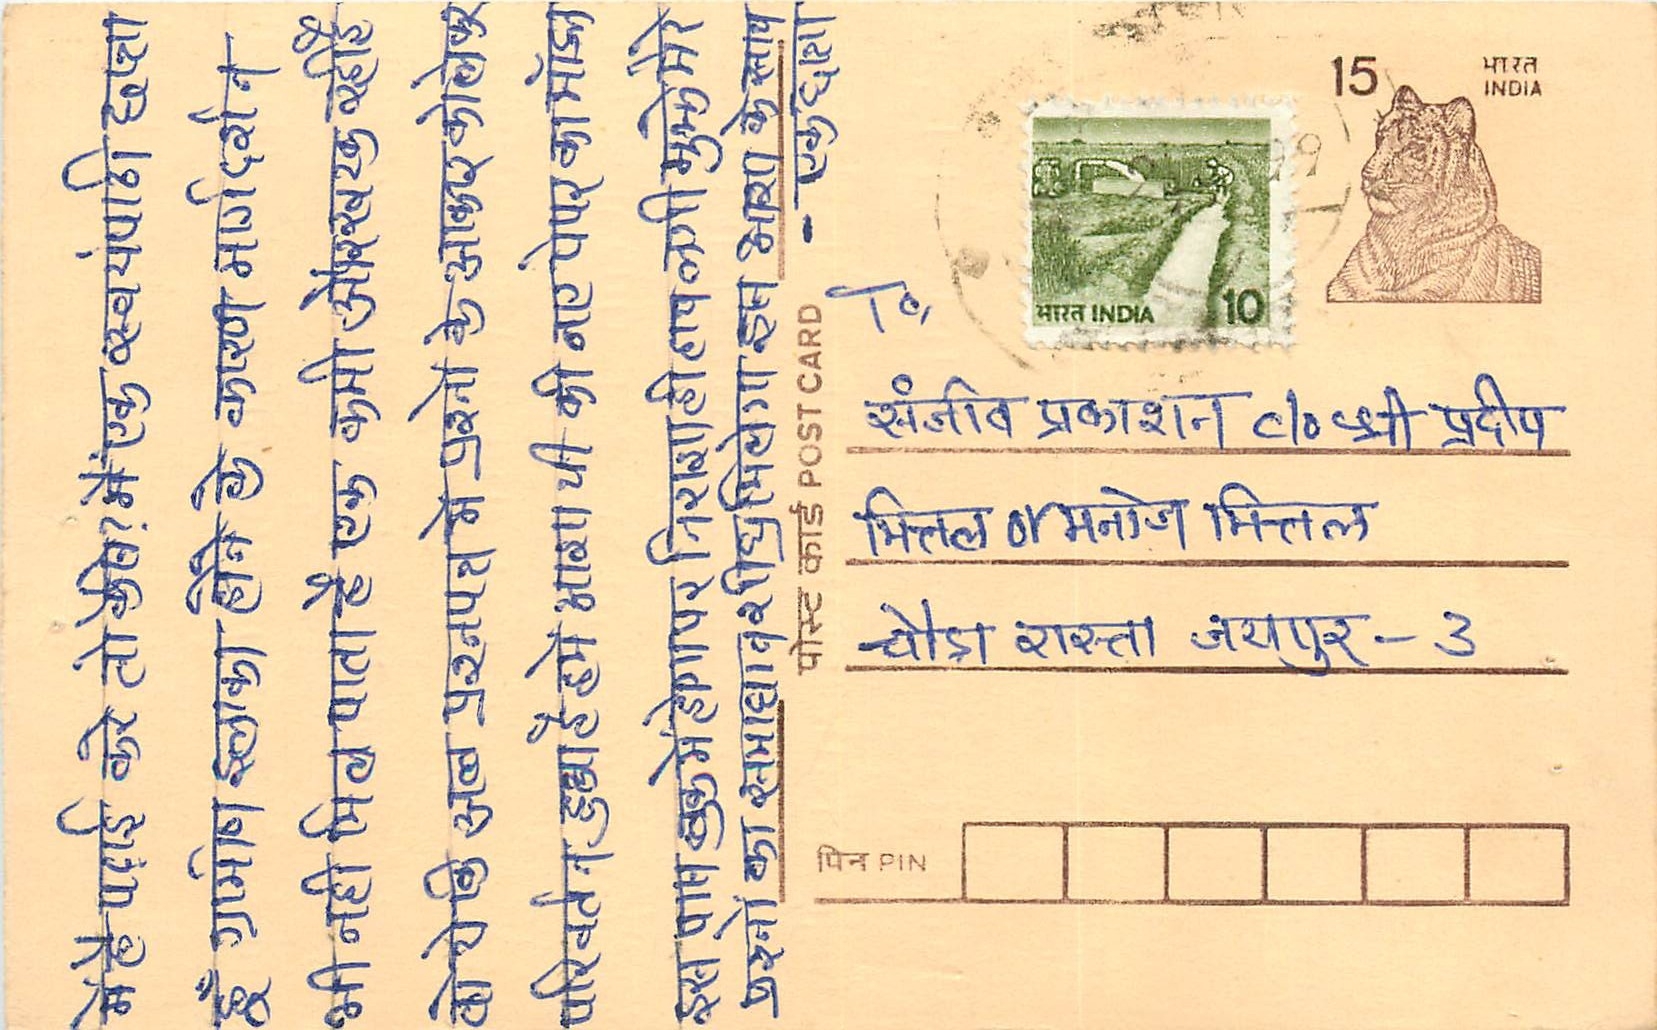 में है पढ़ाई करे तो कैसे? मैं एक स्वयंपाठी छात्रा
हूँ ग्रामीण इलाका होने के कारण मार्गदर्शन
भी नही मिल पाता है एक कमी और खटक रही है
वो ये कि अब प्रश्नपत्र में प्रश्नों के आकार को लेकर
परिवर्तन हुआ है हमें आशा थी की नए पेपर का मॉडल
इस पास बुक में होगा पर निराशा ही हाथ लगी मुझे मेरे
प्रश्नों का समाधान शीघ्र मिलेगा इस आशा के साथ
- एक छात्रा
पोस्ट कार्ड POST CARD
15
भारत
INDIA
भारत INDIA 10
99
To,
संजीव प्रकाशन c/o श्री प्रदीप
मित्तल or मनोज मित्तल
चौड़ा रास्ता जयपुर - 3
पिन PIN